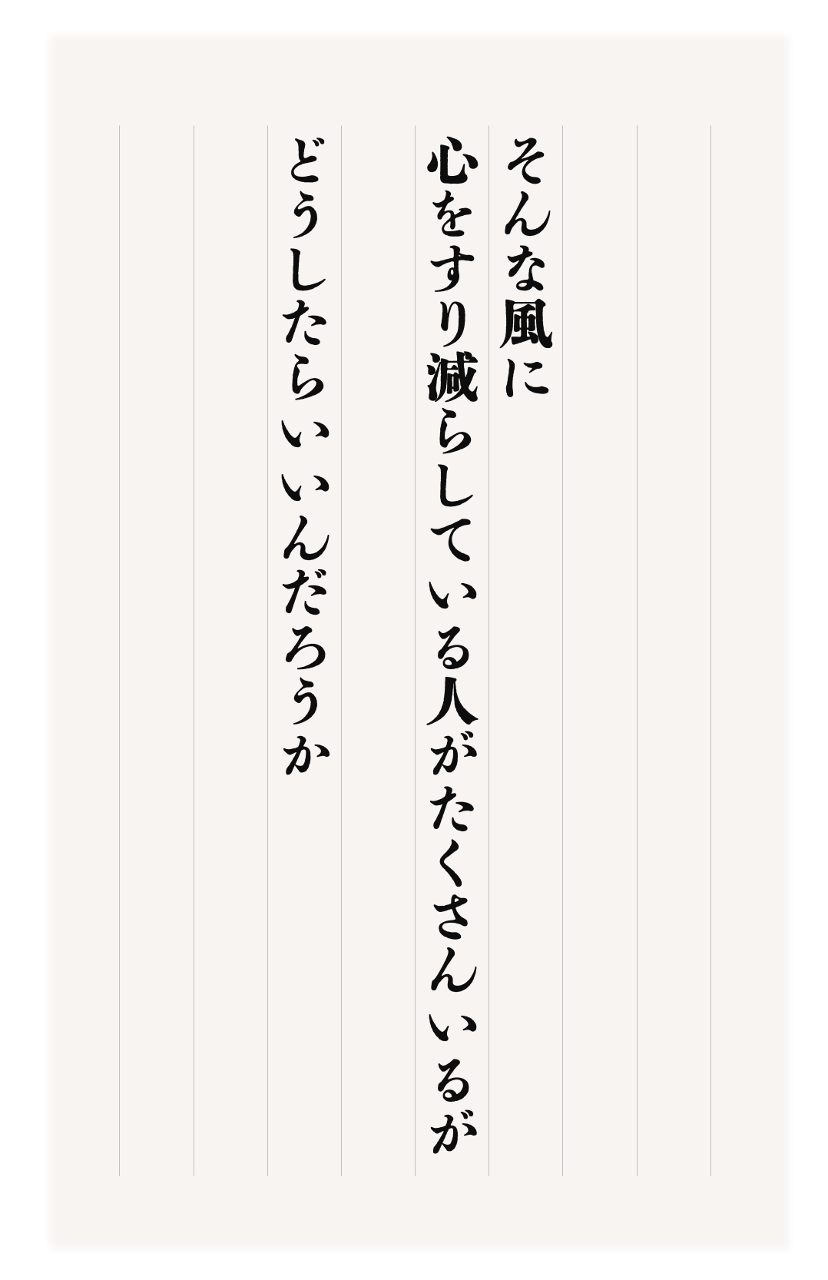 そんな風に
心をすり減らしている人がたくさんいるが
どうしたらいいんだろうか